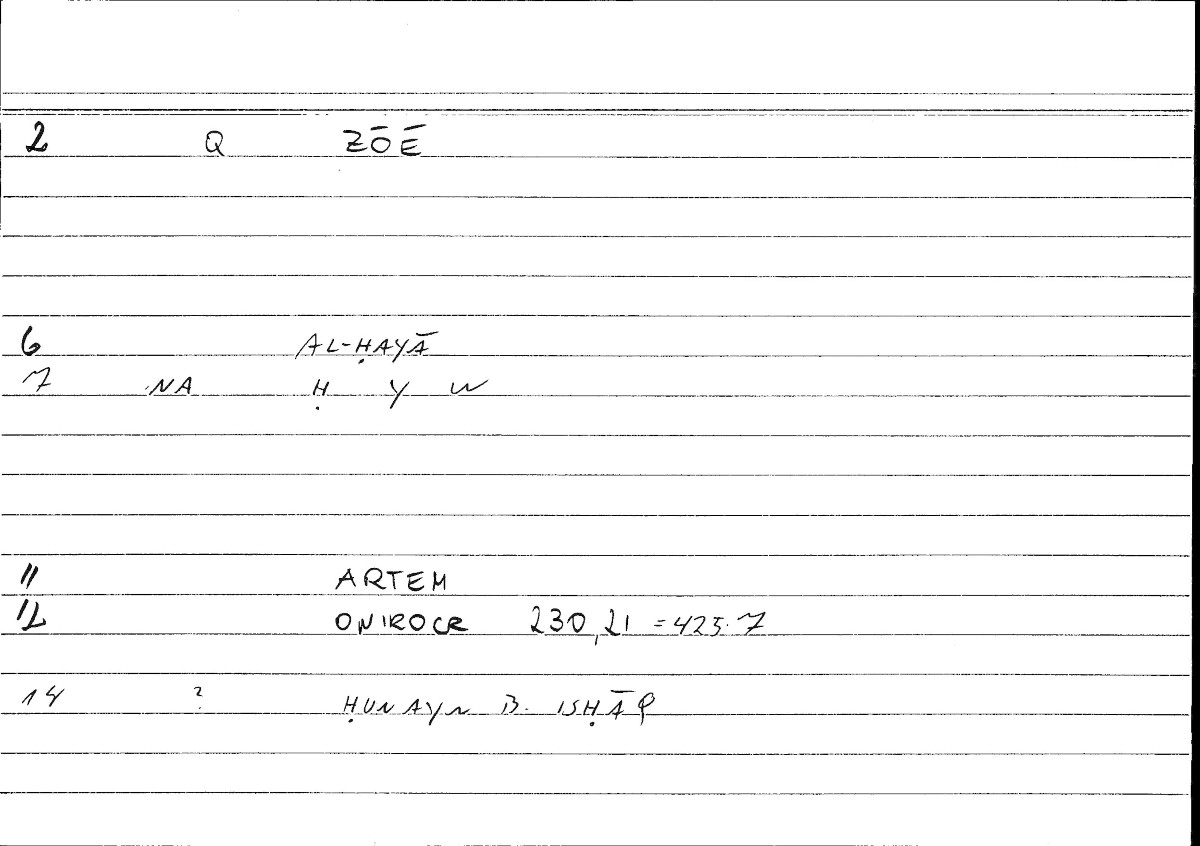 2 Q ZŌĒ
6 AL-ḤAYĀ
7 NA Ḥ Y W
11 ARTEM
12 ONIROCR 230,21 =425.7
14 ? ḤUNAYN B. ISḤĀQ